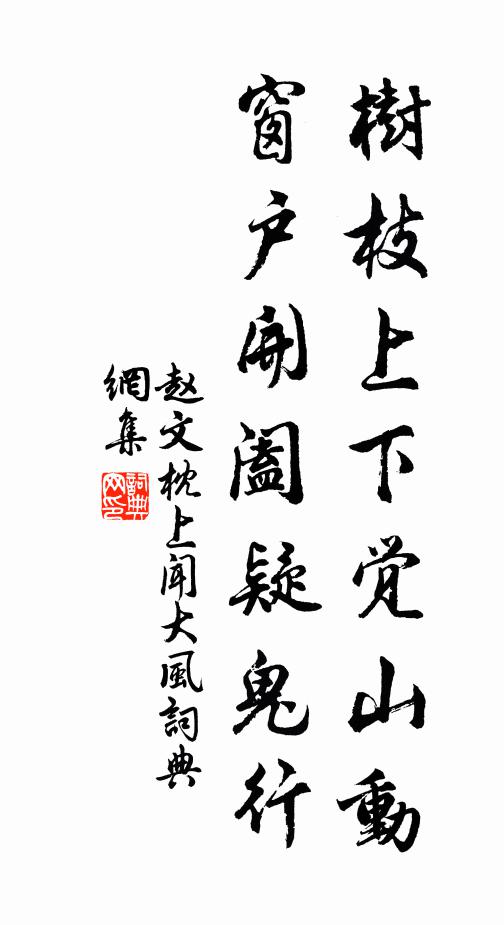 樹枝上下觉山動
窗户開阖疑鬼行
赵文枕上闻大風詞典
網集
詞典網印